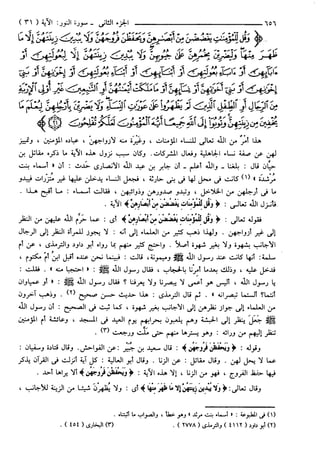 ٦٥٦ ــــــــــ الجزء الثانى ـ سورة النور: الآية ( ٣١ )
﴿ وَقُل لِّلْمُؤْمِنَاتِ يَغْضُضْنَ مِنْ أَبْصَارِهِنَّ وَيَحْفَظْنَ فُرُوجَهُنَّ وَلَا يُبْدِينَ زِينَتَهُنَّ إِلَّا مَا
ظَهَرَ مِنْهَا وَلْيَضْرِبْنَ بِخُمُرِهِنَّ عَلَىٰ جُيُوبِهِنَّ وَلَا يُبْدِينَ زِينَتَهُنَّ إِلَّا لِبُعُولَتِهِنَّ أَوْ
هذا أمر من الله تعالى للنساء المؤمنات ، وغيرة منه لأزواجهن ، عباده المؤمنين ، وتمييز
لهن عن صفة نساء الجاهلية وفعال المشركات. وكان سبب نزول هذه الآية ما ذكره مقاتل بن
حيان قال : بلغنا ـ والله أعلم ـ أن جابر بن عبد الله الأنصارى حدث : أن « أسماء بنت
مرشدة » (١) كانت فى محل لها فى بنى حارثة ، فجعل النساء يدخلن عليها غير متزرات فيبدو
ما فى أرجلهن من الخلاخل ، وتبدو صدورهن وذوائبهن ، فقالت أسماء : ما أقبح هذا .
فأنزل الله تعالى : ﴿ وَقُل لِّلْمُؤْمِنَاتِ يَغْضُضْنَ مِنْ أَبْصَارِهِنَّ ﴾ الآية .
فقوله تعالى : ﴿ وَقُل لِّلْمُؤْمِنَاتِ يَغْضُضْنَ مِنْ أَبْصَارِهِنَّ ﴾ أى : عما حرم الله عليهن من النظر
إلى غير أزواجهن . ولهذا ذهب كثير من العلماء إلى أنه : لا يجوز للمرأة النظر إلى الرجال
الأجانب بشهوة ولا بغير شهوة أصلاً . واحتج كثير منهم بما رواه أبو داود والترمذى ، عن أم
سلمة: أنها كانت عند رسول الله ﷺ وميمونة، قالت : فبينما نحن عنده أقبل ابن أم مكتوم ،
فدخل عليه ، وذلك بعدما أمرنا بالحجاب ، فقال رسول الله ﷺ : « احتجبا منه » . فقلت :
يا رسول الله ، أليس هو أعمى لا يبصرنا ولا يعرفنا ؟ فقال رسول الله ﷺ : « أو عمياوان
أنتما؟ ألستما تبصرانه » . ثم قال الترمذى : هذا حديث حسن صحيح (٢) . وذهب آخرون
من العلماء إلى جواز نظرهن إلى الأجانب بغير شهوة ، كما ثبت فى الصحيح : أن رسول الله
ﷺ جعل ينظر إلى الحبشة وهم يلعبون بحرابهم يوم العيد فى المسجد ، وعائشة أم المؤمنين
تنظر إليهم من ورائه : وهو يسترها منهم حتى ملت ورجعت (٣) .
وقوله : ﴿ وَيَحْفَظْنَ فُرُوجَهُنَّ ﴾ : قال سعيد بن جبير : عن الفواحش. وقال قتادة وسفيان :
عما لا يحل لهن . وقال مقاتل : عن الزنا . وقال أبو العالية : كل آية أنزلت فى القرآن يذكر
فيها حفظ الفروج ، فهو من الزنا ، إلا هذه الآية : ﴿ وَيَحْفَظْنَ فُرُوجَهُنَّ ﴾ ألا يراها أحد .
وقال تعالى: ﴿ وَلَا يُبْدِينَ زِينَتَهُنَّ إِلَّا مَا ظَهَرَ مِنْهَا ﴾ أى : ولا يظهرن شيئا من الزينة للأجانب ،
(١) فى المطبوعة : « أسماء بنت مرثد » وهو خطأ ، والصواب ما أثبتناه .
(٢) أبو داود ( ٤١١٢ ) والترمذى ( ٢٧٧٨ ) . (٣) البخارى ( ٤٥٤ ) .